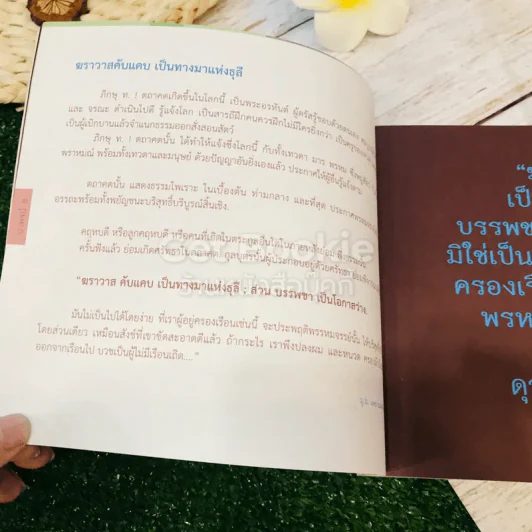 ฆราวาสคับแคบ เป็นทางมาแห่งธุลี
ภิกษุ ท. ! ตถาคตเกิดขึ้นในโลกนี้ เป็นพระอรหันต์ ผู้ตรัสรู้ชอบด้วยตนเอง
และ จรณะ ดำเนินไปดี รู้แจ้งโลก เป็นสารถีฝึกคนควรฝึกไม่มีใครยิ่งกว่า
เป็นผู้เบิกบานแล้วจำแนกธรรมออกสั่งสอนสัตว์
ภิกษุ ท. ! ตถาคตนั้น ได้ทำให้แจ้งซึ่งโลกนี้ กับทั้งเทวดา มาร พรหม
พราหมณ์ พร้อมทั้งเทวดาและมนุษย์ ด้วยปัญญาอันยิ่งเองแล้ว ประกาศให้ผู้อื่นรู้แจ้งตาม
ตถาคตนั้น แสดงธรรมไพเราะ ในเบื้องต้น ท่ามกลาง และที่สุด
อรรถะพร้อมทั้งพยัญชนะบริสุทธิ์บริบูรณ์สิ้นเชิง
คฤหบดี หรือลูกคฤหบดี หรือคนที่เกิดในตระกูลอื่นใดในภายหลัง
ครั้นฟังแล้ว ย่อมเกิดศรัทธาในตถาคต กุลบุตรนั้นผู้ประกอบอยู่ด้วยศรัทธา
Get Bookie
ร้านหนังสือน็อก
"ฆราวาส คับแคบ เป็นทางมาแห่งธุลี ; ส่วน บรรพชา เป็นโอกาสว่าง
มันไม่เป็นไปได้โดยง่าย ที่เราผู้อยู่ครองเรือนเช่นนี้ จะประพฤติพรหมจรรย์นั้น
โดยส่วนเดียว เหมือนสังข์ที่เขาขัดสะอาดดีแล้ว ถ้ากระไร เราพึงปลงผม และหนวด
ออกจากเรือนไป บวชเป็นผู้ไม่มีเรือนเถิด...."
บรรพช
มิใช่เป็น
ครองเรื
พรห